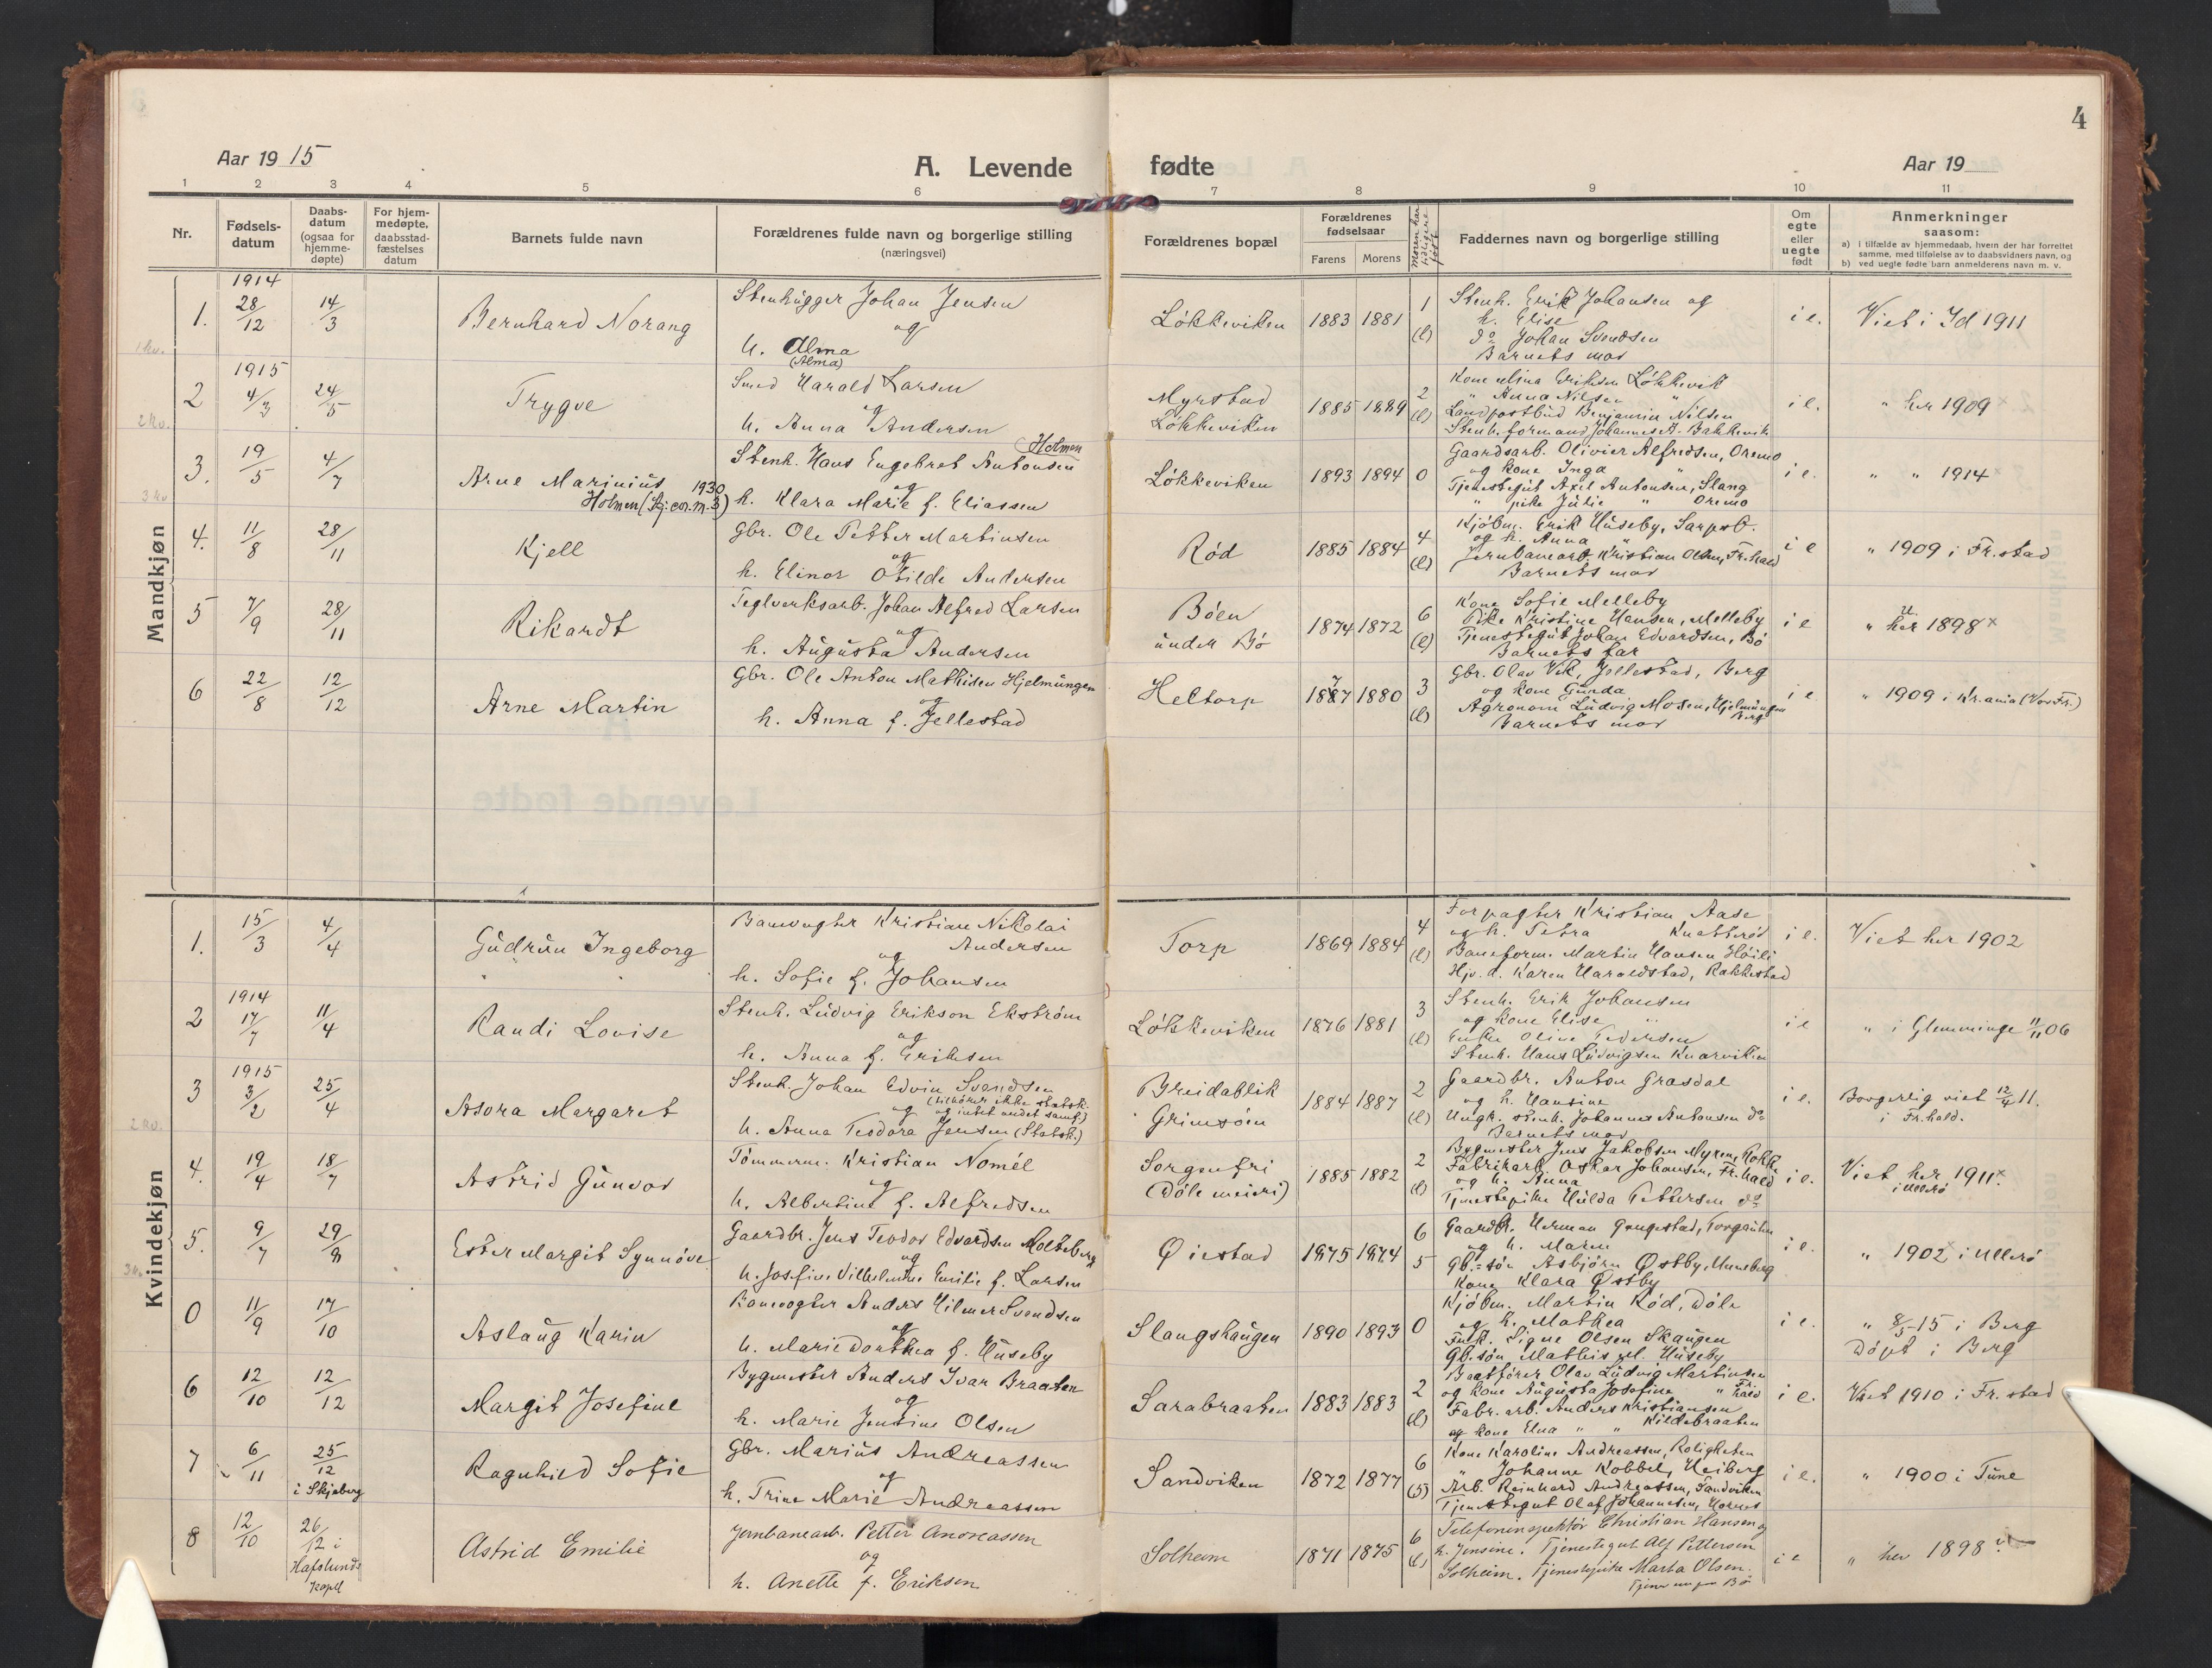 4
Aar 19 15
A. Levende fødte
Aar 19
1 2 3 4 5 6 7 8 9 10 11
Nr.
Fødsels-
datum
Daabs-
datum
(ogsaa for
hjemme-
døpte)
For hjem-
medøpte,
daabsstad-
fæstelses
datum
Barnets fulde navn
Forældrenes fulde navn og borgerlige stilling
(næringsvei)
Forældrenes bopæl
Forældrenes
fødselsaar
Farens Morens
Moren har
tidligere
født
Faddernes navn og borgerlige stilling
Om
egte
eller
uegte
født
Anmerkninger
saasom:
a) i tilfælde av hjemmedaab, hvem der har forrettet
samme, med tilføielse av to daabsvidners navn, og
b) ved uegte fødte barn anmelderens navn m. v.
Mandkjøn
1914
1. 28/12 14/3 Bernhard Norang
Stenhugger Johan Jensen
og
h. Alma
(Alma)
Løkkeviken 1883 1881 1
(l)
Stenh. Erik Johansen og
h. Elise
do Johan Svendsen
Barnets mor
i e. Viet i Id 1911
1915
2 4/3 24/5 Trygve
Smed Harald Larsen
og
h. Anna Andersen
Myrstad
Løkkeviken
1885 1889 2
(l)
Kone Mina Eriksen Løkkevik
" Anna Nilsen "
Landpostbud Benjamin Nilsen
Stenh.formand Johannes A. Bakkevik
i e. " her 1909 x
3. 19/5 4/7 Arne Marinius 1930
Holmen (Skj: con. m. 3)
Stenh. Hans Engebret Antonsen (Holmen
og
h. Klara Marie f. Eliassen
Løkkeviken 1893 1894 0
Gaardsarb. Olivier Alfredsen, Oremo
og kone Inga "
Tjenestegut Axel Antonsen, Slang
" pike Julie " Oremo
i e. " " 1914
4. 11/8 28/11 Kjell
Gbr. Ole Petter Martinsen
og
h. Elinor Otilde Andersen
Rød 1885 1884 4
(l)
Kjøbm. Erik Huseby, Sarpsb.
og h. Anna "
Jernbanearb. Kristian Olsen, Fr.hald
Barnets mor
i e " 1909 i Fr.stad
5 7/9 28/11 Rikardt
Teglverksarb. Johan Alfred Larsen
og
h. Augusta Andersen
Bøen
under Bø
1874 1872 6
(l)
Kone Sofie Melleby
Pike Kristine Hansen, Melleby
Tjenestegut Johan Edvardsen, Bø
Barnets far
i e " her 1898 x
6 22/8 12/12 Arne Martin
Gbr. Ole Anton Mathisen Hjelmungen
og
h. Anna f. Jellestad
Heltorp 1887 1880 3
(l)
Gbr. Olav Vik, Jellestad, Berg
og kone Gunda
Agronom Ludvig Mosen, Hjelmungen
Barnets mor Berg
i e " 1909 i Kr.ania (Vor Fr.)
Kvindekjøn
1. 15/3 4/4 Gudrun Ingeborg
Banevogter Kristian Nikolai
Andersen
og
h. Sofie f. Johansen
Torp 1869 1884 4
(l)
Forpagter Kristian Aase
og h. Petra Knatterød
Baneform. Martin Hansen Høili
Hjv. d. Karen Haraldstad, Rakkestad
i e. Viet her 1902
1914
2 17/7 11/4 Randi Lovise
Stenh. Ludvig Erikson Ekstrøm
og
h. Anna f. Eriksen
Løkkeviken 1876 1881 3
(l)
Stenh. Erik Johansen
og kone Elise "
Enke Oline Pedersen
Stenh. Hans Ludvigsen Knarviken
i e " i Glemminge 11/11 06
1915
3 3/2 25/4 Asora Margaret
Stenh. Johan Edvin Svendsen
(tilhører ikke statsk.
og og intet andet samf.)
h. Anna Teodora Jensen (Statsk.)
Breidablik
Grimsøen
1884 1887 2
(l)
Gaardbr. Anton Grasdal
og h. Hansine
Ungk. stenh. Johannes Antonsen do
Barnets mor
i e. Borgerlig viet 12/4 11.
i Fr.hald.
4. 19/4 18/7 Astrid Gunvor
Tømmerm. Kristian Nomél
og
h. Albertine f. Alfredsen
Sorgenfri
(Døle meieri)
1885 1882 2
(l)
Bygmester Jens Jakobsen Myren, Rokke
Fabrikarb. Oskar Johansen, Fr.hald
og h. Anna
Tjenestepike Hulda Pettersen do
i e. Viet her 1911 x
i Ullerø
5. 9/7 29/8 Ester Margit Synnøve
Gaardbr. Jens Teodor Edvardsen Molteberg
og
h. Josefine Vilhelmine Emilie f. Larsen
Øiestad 1875 1874 6
5
Gaardbr. Herman Grugestad, Torgauten
og h. Maren
Gb.=søn Asbjørn Østby, Unneberg
Kone Klara Østby
i e. " 1902 x i Ullerø
0 11/9 17/10 Aslaug Karin
Banevogter Anders Hilmer Svendsen
og
h. Marie Dorthea f. Huseby
Slangshaugen 1890 1893 0
Kjøbm. Martin Rød, Døle
og h. Mathea
Frøk. Signe Olsen Skaugen
Gb.søn Mathis M. Huseby
i e. " 8/5-15 i Berg
Døpt i Berg
6 12/10 12/12 Margit Josefine
Bygmester Anders Ivar Braaten
og
h. Marie Jensine Olsen
Sarabraaten 1883 1883 2
(l)
Baatfører Olav Ludvig Martinsen
og kone Augusta Josefine " Fr.hald
Fabr.arb. Anders Kristiansen
og kone Elna " " Kildebraaten
i e. Viet 1910 i Fr.stad
7 6/11 25/12
i Skjeberg
Ragnhild Sofie
Gbr. Marius Andreassen
og
h. Trine Marie Andreassen
Sandviken 1872 1877 6
(5)
Kone Karoline Andreassen, Roligheten
" Johanne Kobbel, Heiberg
Arb. Reinhard Andreassen, Sandviken
Tjenestegut Olaf Johannesen, Hornes
i e. " 1900 i Tune
8 12/10 26/12 i
Hafslunds
kapel
Astrid Emilie
Jernbanearb. Petter Andreassen
og
h. Anette f. Eriksen
Solheim 1871 1875 6
(l)
Telefoninspektør Christian Hansen og
h. Jensine. Tjenestegut Alf Pettersen
Solheim. Tjenestepike Marta Olsen.
i e " her 1898